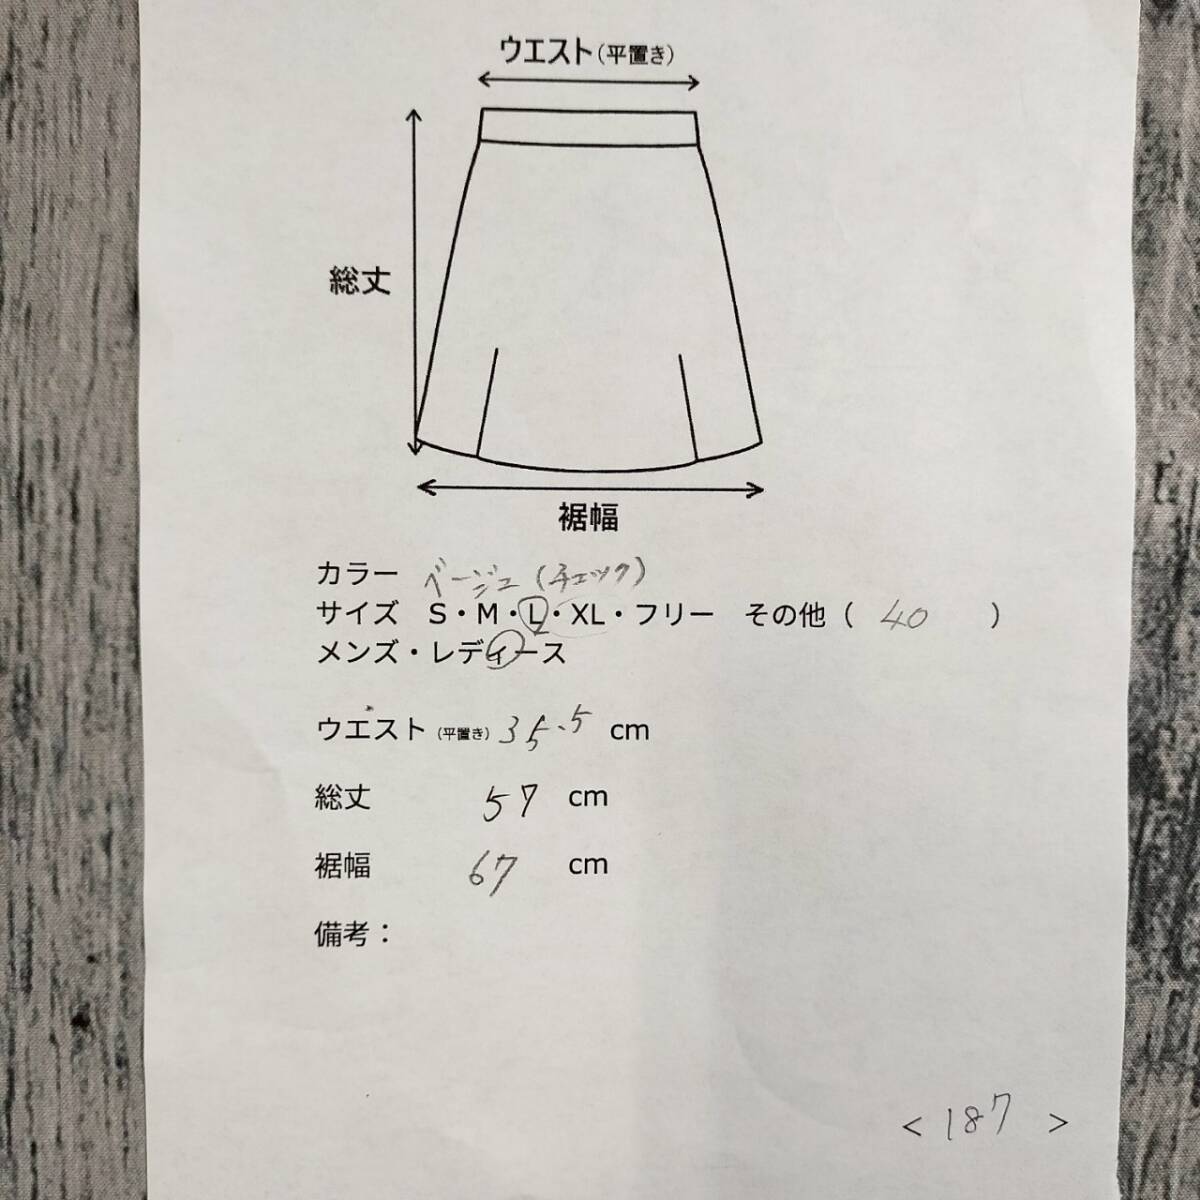 ウエスト(平置き)
総丈
裾幅
カラー ベージュ(チェック)
サイズ S・M・L・XL・フリー その他( 40 )
メンズ・レディース
ウエスト(平置き) 35.5 cm
総丈 57 cm
裾幅 67 cm
備考：
< 187 >